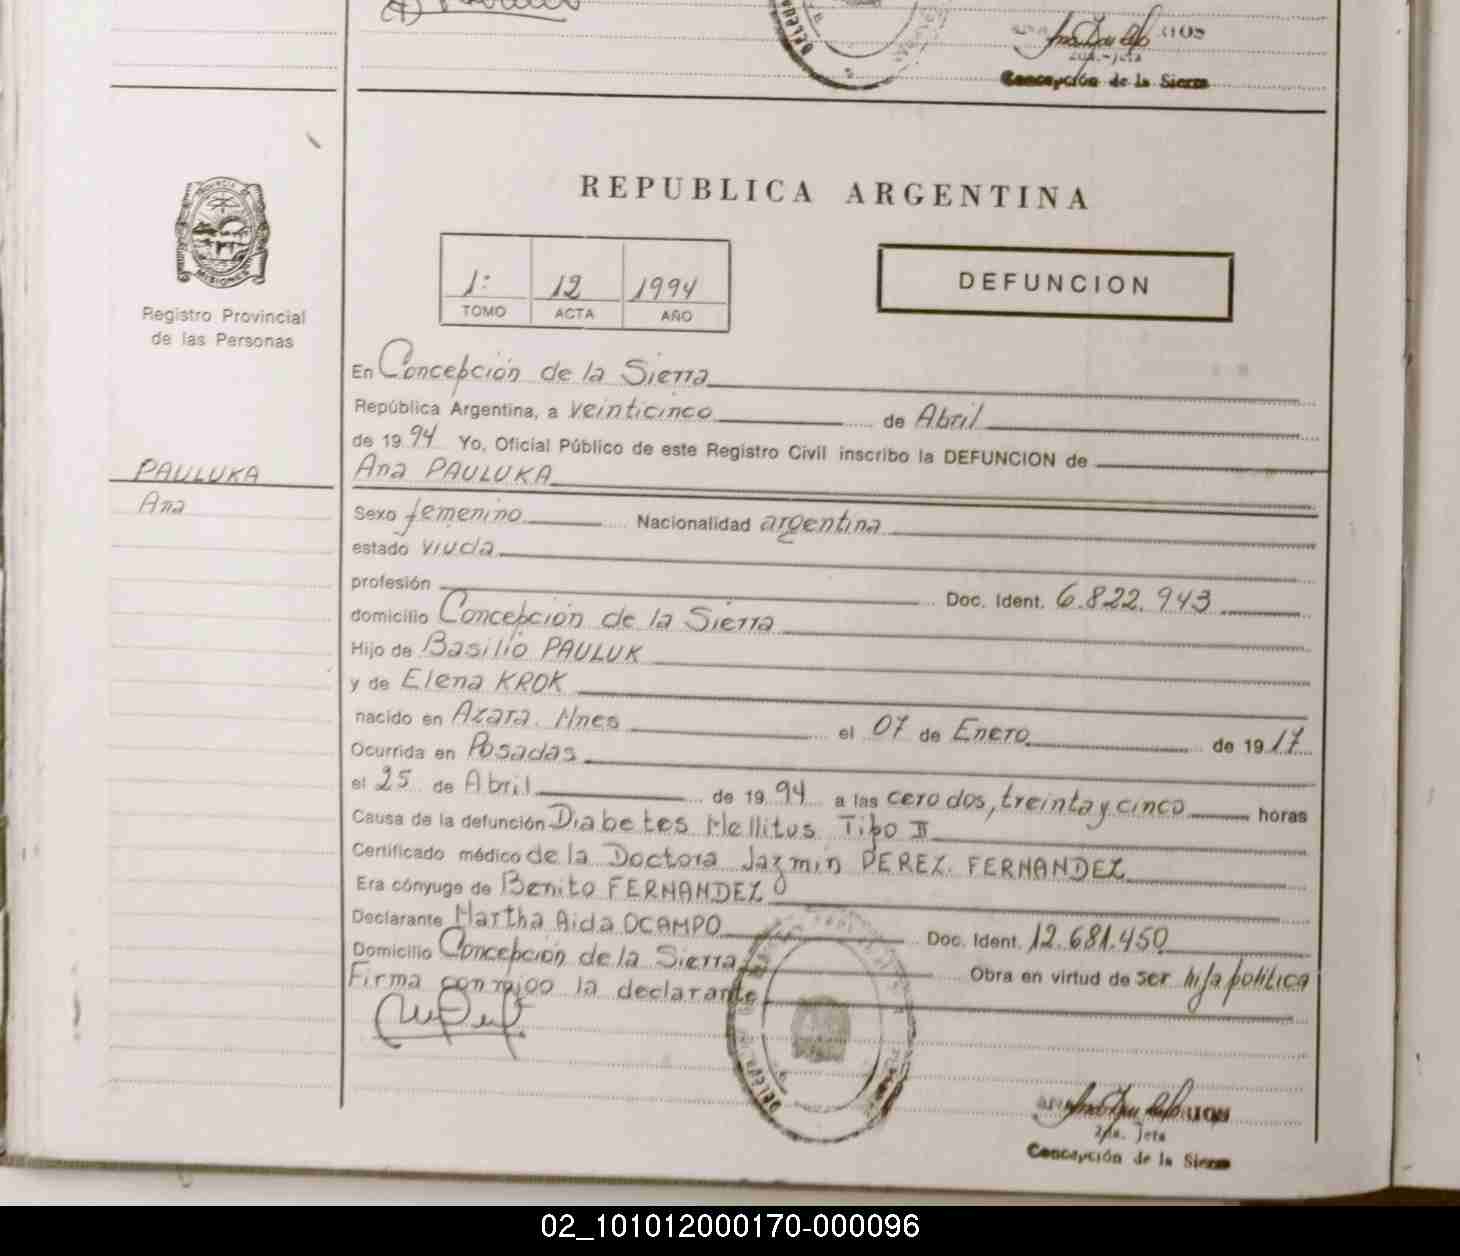 Concepción de la Sierra
PROVINCIA DE
MISIONES
Registro Provincial
de las Personas
PAULUKA
Ana
REPUBLICA ARGENTINA
1: 12 1994
TOMO ACTA AÑO
DEFUNCION
En Concepción de la Sierra
República Argentina, a veinticinco de Abril
de 1994 Yo, Oficial Público de este Registro Civil inscribo la DEFUNCION de
Ana PAULUKA
Sexo femenino Nacionalidad argentina
estado viuda
profesión Doc. Ident. 6.822.943
domicilio Concepción de la Sierra
Hijo de Basilio PAULUK
y de Elena KROK
nacido en Azara. Mnes el 07 de Enero de 1917
Ocurrida en Posadas
el 25 de Abril de 1994 a las cero dos, treinta y cinco horas
Causa de la defunción Diabetes Mellitus Tipo II
Certificado médico de la Doctora Jazmin PEREZ FERNANDEZ
Era cónyuge de Benito FERNANDEZ
Declarante Martha Aida OCAMPO Doc. Ident. 12.681.450
Domicilio Concepción de la Sierra Obra en virtud de ser hija política
Firma conmigo la declarante
2da. Jefa
Concepción de la Sierra
02_101012000170-000096